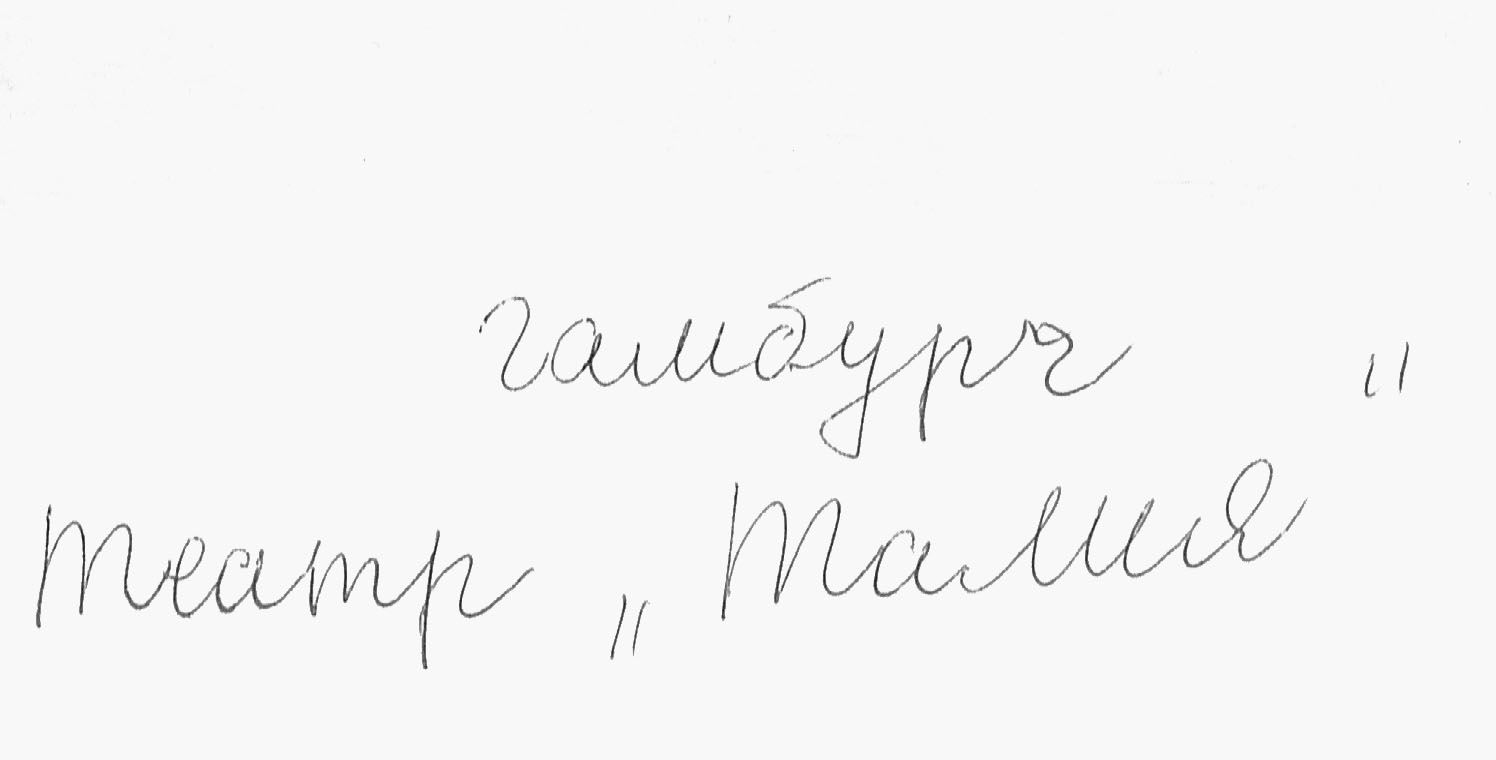 гамбург
Театр „Талия"